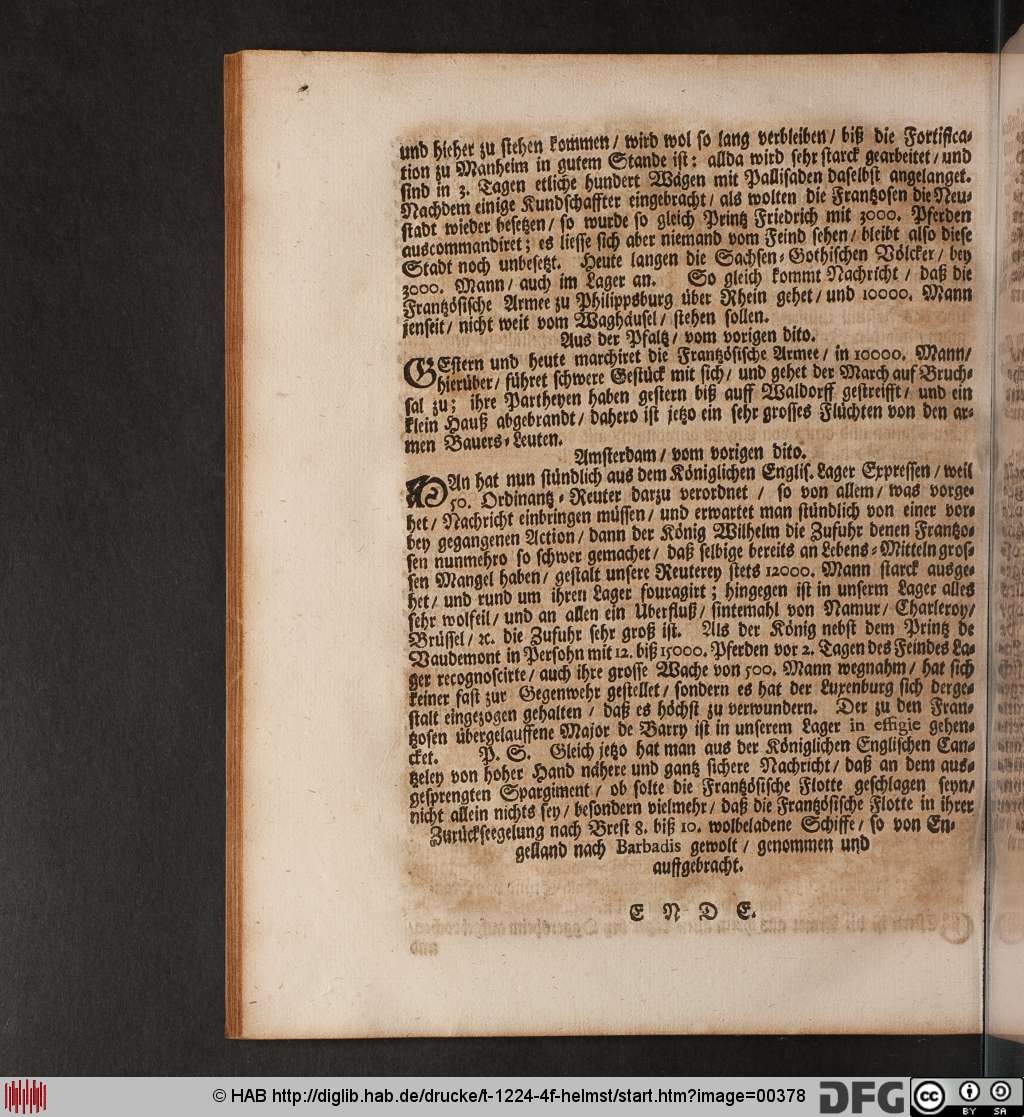 und hieher zu stehen kommen / wird wol so lang verbleiben / biß die Fortifica-
tion zu Manheim in gutem Stande ist: allda wird sehr starck gearbeitet / und
sind in 3. Tagen etliche hundert Wägen mit Pallisaden daselbst angelanget.
Nachdem einige Kundschaffter eingebracht / als wolten die Frantzosen die Neu-
stadt wieder besetzen / so wurde so gleich Printz Friedrich mit 3000. Pferden
auscommandiret; es liesse sich aber niemand vom Feind sehen / bleibt also diese
Stadt noch unbesetzt. Heute langen die Sachsen-Gothischen Völcker / bey
3000. Mann / auch im Lager an. So gleich kommt Nachricht / daß die
Frantzösische Armee zu Philippsburg über Rhein gehet / und 10000. Mann
jenseit / nicht weit vom Waghäusel / stehen sollen.
Aus der Pfaltz / vom vorigen dito.
GEstern und heute marchiret die Frantzösische Armee / in 10000. Mann /
hierüber / führet schwere Gestück mit sich / und gehet der March auf Bruch-
sal zu; ihre Partheyen haben gestern biß auff Waldorff gestreifft / und ein
klein Hauß abgebrandt / dahero ist jetzo ein sehr grosses Flüchten von den ar-
men Bauers-Leuten.
Amsterdam / vom vorigen dito.
MAn hat nun stündlich aus dem Königlichen Englis. Lager Expressen / weil
50. Ordinantz-Reuter darzu verordnet / so von allem / was vorge-
het / Nachricht einbringen müssen / und erwartet man stündlich von einer vor-
bey gegangenen Action / dann der König Wilhelm die Zufuhr denen Frantzo-
sen nunmehro so schwer gemachet / daß selbige bereits an Lebens-Mitteln gros-
sen Mangel haben / gestalt unsere Reuterey stets 12000. Mann starck ausge-
het / und rund um ihren Lager fouragirt; hingegen ist in unserm Lager alles
sehr wolfeil / und an allen ein Überfluß / sintemahl von Namur / Charleroy /
Brüssel / ꝛc. die Zufuhr sehr groß ist. Als der König nebst dem Printz de
Vaudemont in Persohn mit 12. biß 15000. Pferden vor 2. Tagen des Feindes La-
ger recognoscirte / auch ihre grosse Wache von 500. Mann wegnahm / hat sich
keiner fast zur Gegenwehr gestellet / sondern es hat der Luxenburg sich derge-
stalt eingezogen gehalten / daß es höchst zu verwundern. Der zu den Fran-
tzosen übergelauffene Major de Barry ist in unserem Lager in effigie gehen-
cket. P. S. Gleich jetzo hat man aus der Königlichen Englischen Can-
tzeley von hoher Hand nähere und gantz sichere Nachricht / daß an dem aus-
gesprengten Spargiment / ob solte die Frantzösische Flotte geschlagen seyn /
nicht allein nichts sey / besondern vielmehr / daß die Frantzösische Flotte in ihrer
Zurückseegelung nach Brest 8. biß 10. wolbeladene Schiffe / so von En-
gelland nach Barbadis gewolt / genommen und
auffgebracht.
E N D E.
© HAB http://diglib.hab.de/drucke/t-1224-4f-helmst/start.htm?image=00378
DFG
cc
BY SA